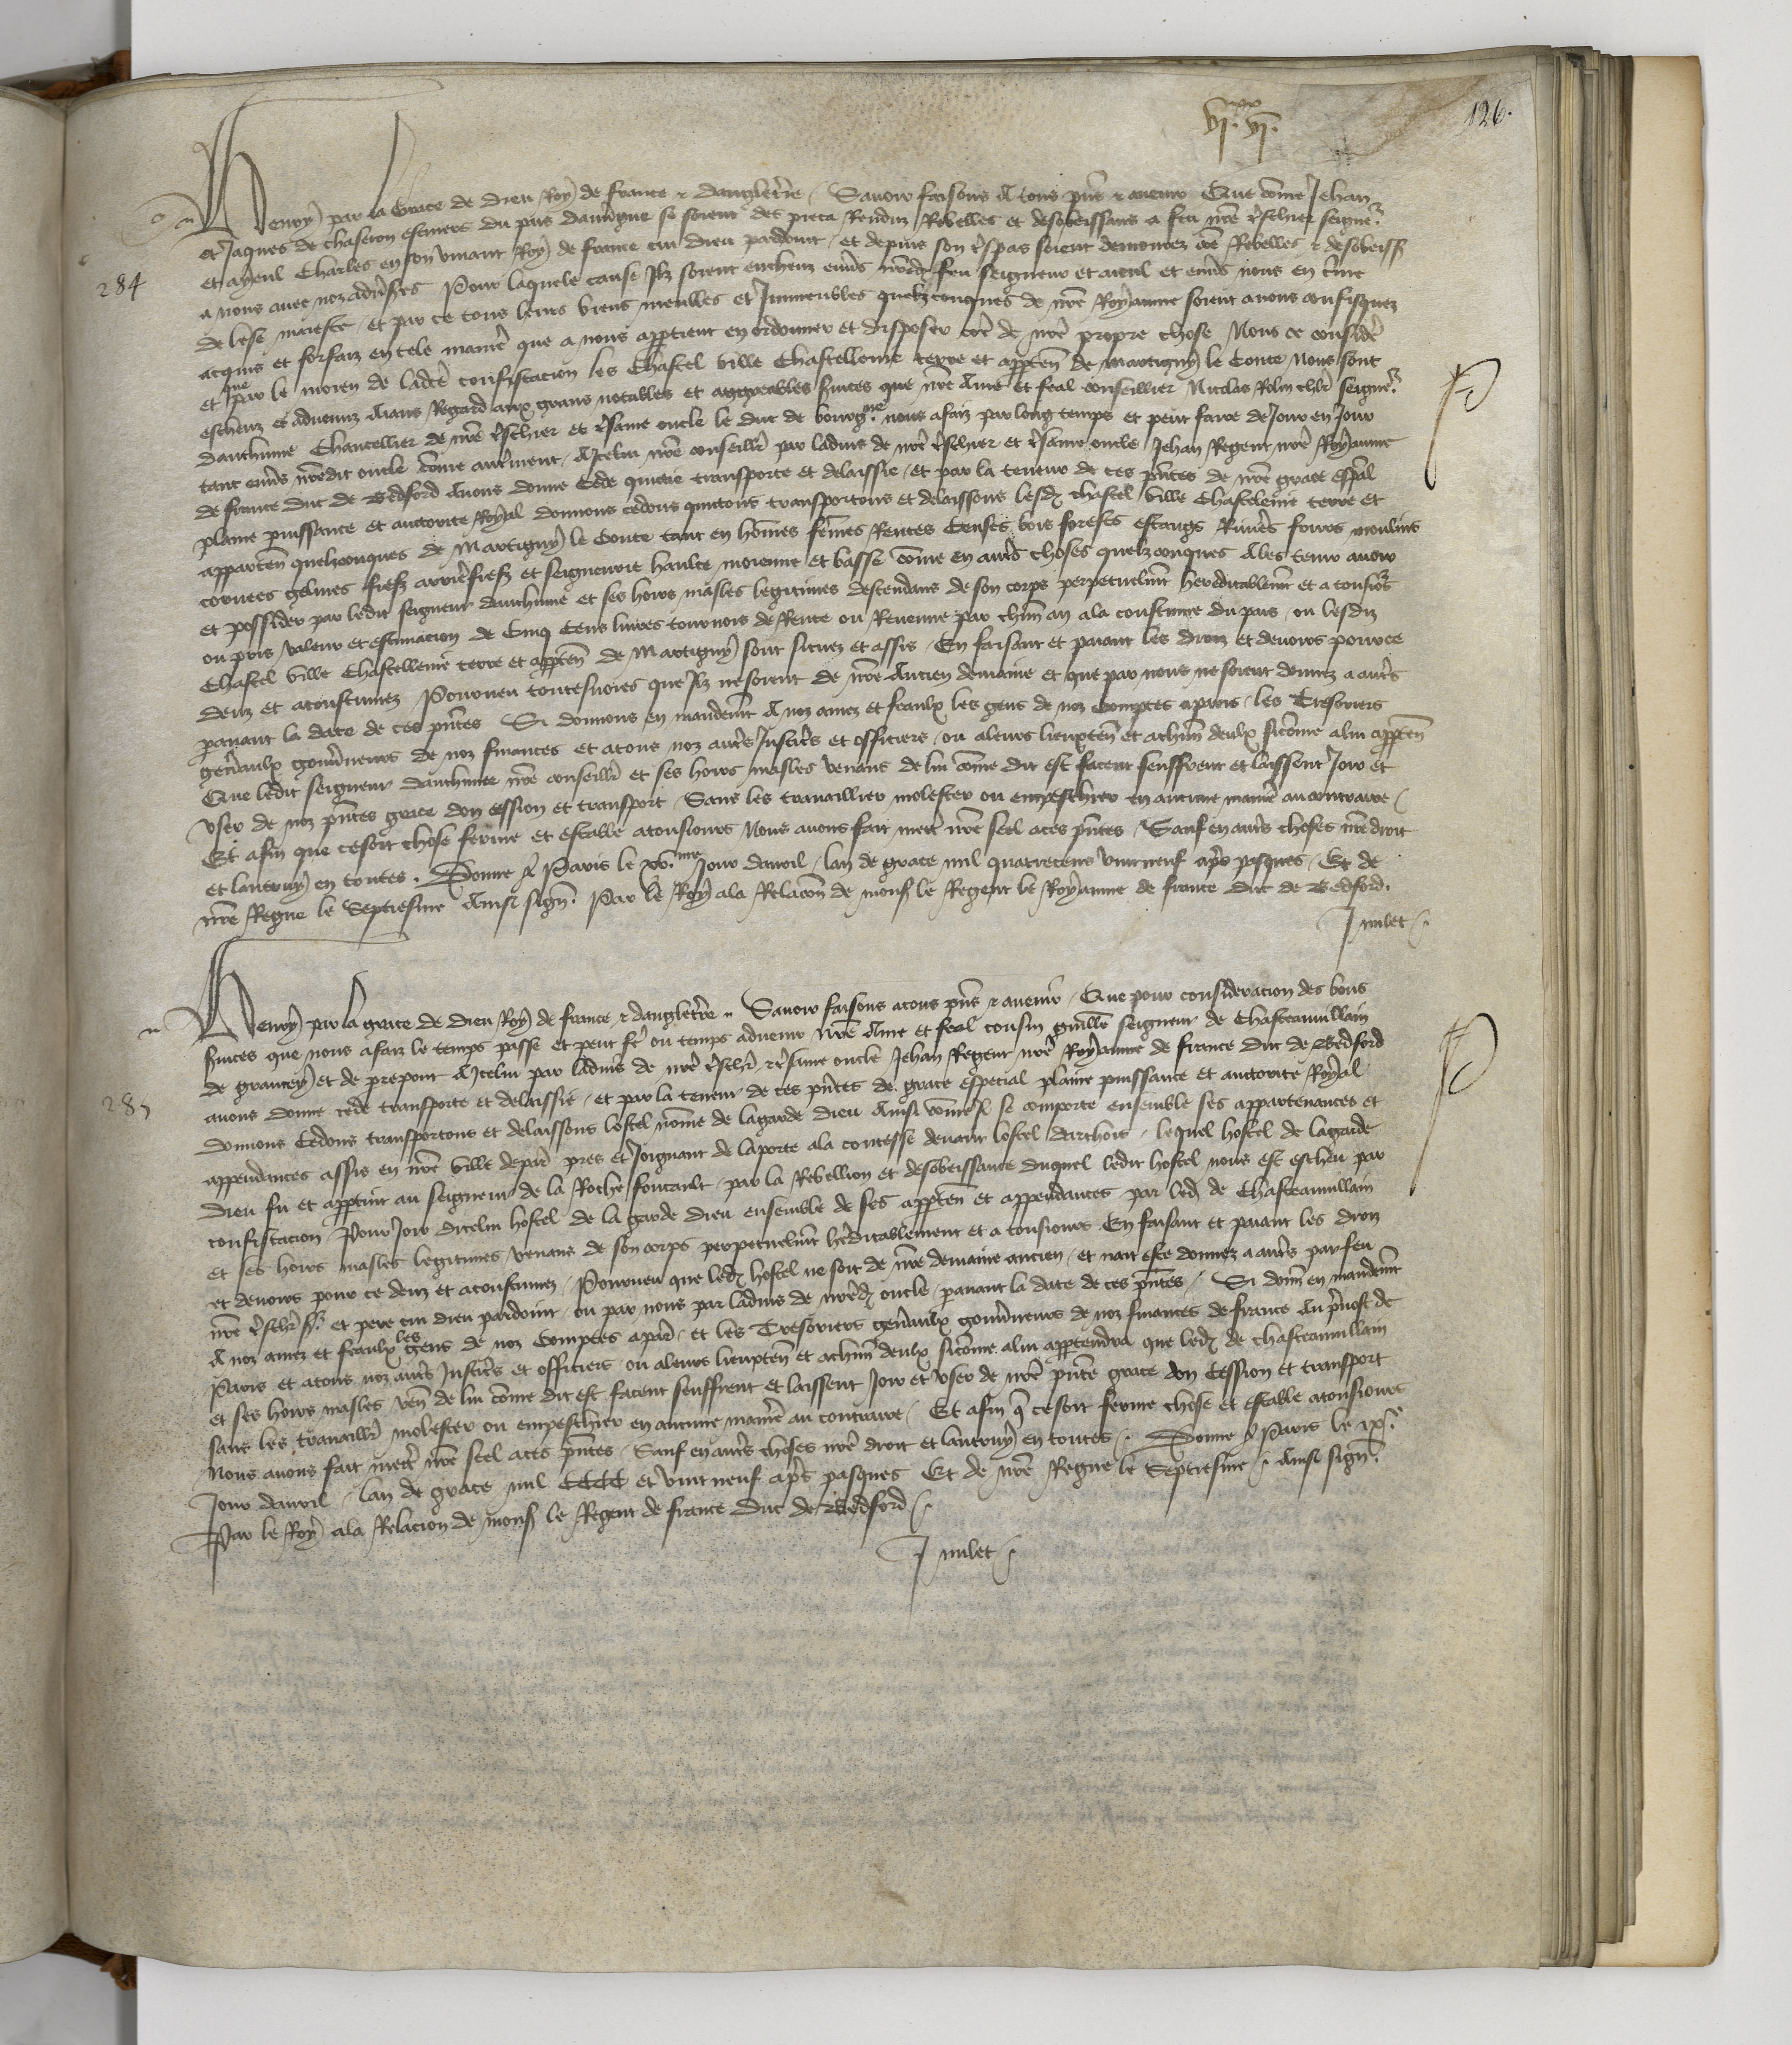 126.
vi.xx vi.
Henry par la grace de dieu Roy de france & dangleterre / Savoir faisons A tous pñs & avenir Que cõme Jehan
et Jaques de chaseron escuiers du pais dauvergne se soient des pieca Renduz Rebelles et desobeissans a feu nr̃e treschier seignr̃
et ayeul Charles en son vivant Roy de france cui dieu pardoint / et depuis son trespas soient demourez Rebelles & desobeiss
284
a nous avec noz adversres Pour laquele cause Ilz soient encheuz envs nr̃edꝫ feu seigneur et aieul et envs nous en crime
de lese maieste / et par ce tous leurs biens meubles et Immeubles quelzconques de nr̃e Royaume soient a nous confisquez
acquis et forfaiz en tele manr̃e que a nous apptient en ordonner et disposer cõe de nr̃e propre chose Nous ce considere
et que par le moien de ladcẽ confiscacion les Chastel ville Chastellenie terre et apptẽn de Martigny le Conte nous sont
escheuz et advenuz Aians Regard aux grans notables et aggreables svices que nr̃e Ame et feal conseillier Nicolas Rolin chlr̃ seignr̃
dauthume Chancellier de nr̃e treschier et tresame oncle le duc de bourgne nous a faiz par long temps et peut faire de Jour en Jour
tant envs nr̃edit oncle cõme autr̃ment / A Icelui nr̃e conseillr̃ par ladvis de nr̃e treschier et tresame oncle Jehan Regent nr̃e Royaume
de france duc de Bedford Avons donne Cede quictie transporte et delaissie / et par la teneur de ces pñtes de nr̃e grace espãl
plaine puissance et auctorite Royal donnons cedons quictons transportons et delaissons lesdꝫ chastel ville Chastelenie terre et
apparteñ quelzconques de Martigny le Conte tant en hõmes fẽmes Rentes Censes bois forests estangs Rivieres fours moulins
corvees gelines fiefz arrierefiefz et seigneurie haulte moienne et basse cõme en autr̃s choses quelzconques A les tenir avoir
et possider par ledit seigneur dauthume et ses hoirs masles legitimes descendans de son corps perpetuelmt̃ hereditablemt̃ et a tousiours
ou pris valeur et estimacion de Cinq Cens livres tournois de Rente ou Revenue par chũn an a la coustume du pais ou lesdiz
Chastel ville Chastellenie terre et apptẽn de Martigny sont situez et assis / En faisant et paiant les droiz et devoirs pour ce
deuz et acoustumez Pourveu toutesvoies que Ilz ne soient de nr̃e Ancien demaine et que par nous ne soient donnez a autr̃s
paravant la date de ces pñtes Si donnons en mandemt̃ A noz amez et feaulx les gens de noz Comptes a paris / les Tresoriers
gen̄aulx gouv̄neurs de noz finances et a tous noz autr̃s Justicr̃s et officiers / ou a leurs lieuxteñ et a chũn deulx sicõme a lui appteñ
Que ledit seigneur dauthume nr̃e conseillr̃ et ses hoirs masles venans de lui cõme dit est facent seuffrent et laissent Joir et
user de noz pñtes grace don cession et transport / Sans les travaillier molester ou empeschier en aucune manr̃e au contraire /
Et afin que ce soit chose ferme et estable a tousiours Nous avons fait mectr̃ nr̃e seel a ces pñtes / Sauf en autr̃s choses nr̃e droit
et lautruy en toutes. Donne A Paris le xvme Jour davril / lan de grace mil quatrecens vint neuf apr̃s pasques / Et de
nr̃e Regne le Septiesme Ainsi signe. Par le Roy a la Relacõn de monsꝫ le Regent le Royaume de france duc de Bedford.
J milet /.
Henry par la grace de dieu Roy de france & dangleterre Savoir faisons a tous pñs & avenir / Que pour consideracion des bons
svices que nous a faiz le temps passe et peut fr̃e ou temps advenir nr̃e Ame et feal cousin guillẽ seigneur de Chasteauvillain
de grancey et de prepont A Icelui par ladvis de nr̃e treschr̃ & tresame oncle Jehan Regent nr̃e Royaume de france duc de Bedford
285
avons donne cede transporte et delaissie / et par la teneur de ces pñtes de grace especial plaine puissance et auctorite Royal
donnons Cedons transportons et delaissons lostel nõme de lagarde dieu Ainsi cõme Il se comporte ensemble ses appartenances et
appendances assis en nr̃e ville de paris pres et Joignant de laporte a la contesse devant lostel darthois / lequel hostel de lagarde
dieu fu et apptint au seigneur de la Rochefoucault / par la Rebellion et desobeissance duquel ledit hostel nous est escheu par
confiscacion Pour Joir dicelui hostel de la garde dieu ensemble de ses appteñ et appendances par ledꝫ de Chasteauvillain
et ses hoirs masles legitimes venans de son corps perpetuelmt̃ her̃ditablement et a tousiours En faisant et paiant les droiz
et devoirs pour ce deuz et acoustumez / Pourveu que ledꝫ hostel ne soit de nr̃e demaine ancien / et nait este donnez a autr̃s par feu
nr̃e treschr̃ sꝫ et pere cui dieu pardoint / ou par nous par ladvis de nr̃edꝫ oncle / paravant la date de ces pñtes / Si donñ en mandemt̃
A noz amez et feaulx les gens de noz Comptes a paris / et les Tresoriers gen̄aulx gouv̄neurs de noz finances de france Au prevost de
Paris et a tous noz autr̃s Justicr̃s et officiers ou a leurs lieuxteñ et a chũn deulx sicõme a lui apptendra que ledꝫ de chasteauvillain
et ses hoirs masles veñ de lui cõme dit est facent seuffrent et laissent Joir et user de nr̃e pñte grace don Cession et transport
sans les travaillr̃ molester ou empeschier en aucune manr̃e au contraire / Et afin q̃ ce soit ferme chose et estable a tousiours
Nous avons fait mectr̃ nr̃e seel a ces pñtes / Sauf en autr̃s choses nr̃e droit et lautruy en toutes /. Donne A Paris le ixe
Jour davril / lan de grace mil CCCC et vint neuf apr̃s pasques Et de nr̃e Regne le Septiesme /. Ainsi signe.
Par le Roy a la Relacion de monsꝫ le Regent de france duc de Bedford /.
J milet /.